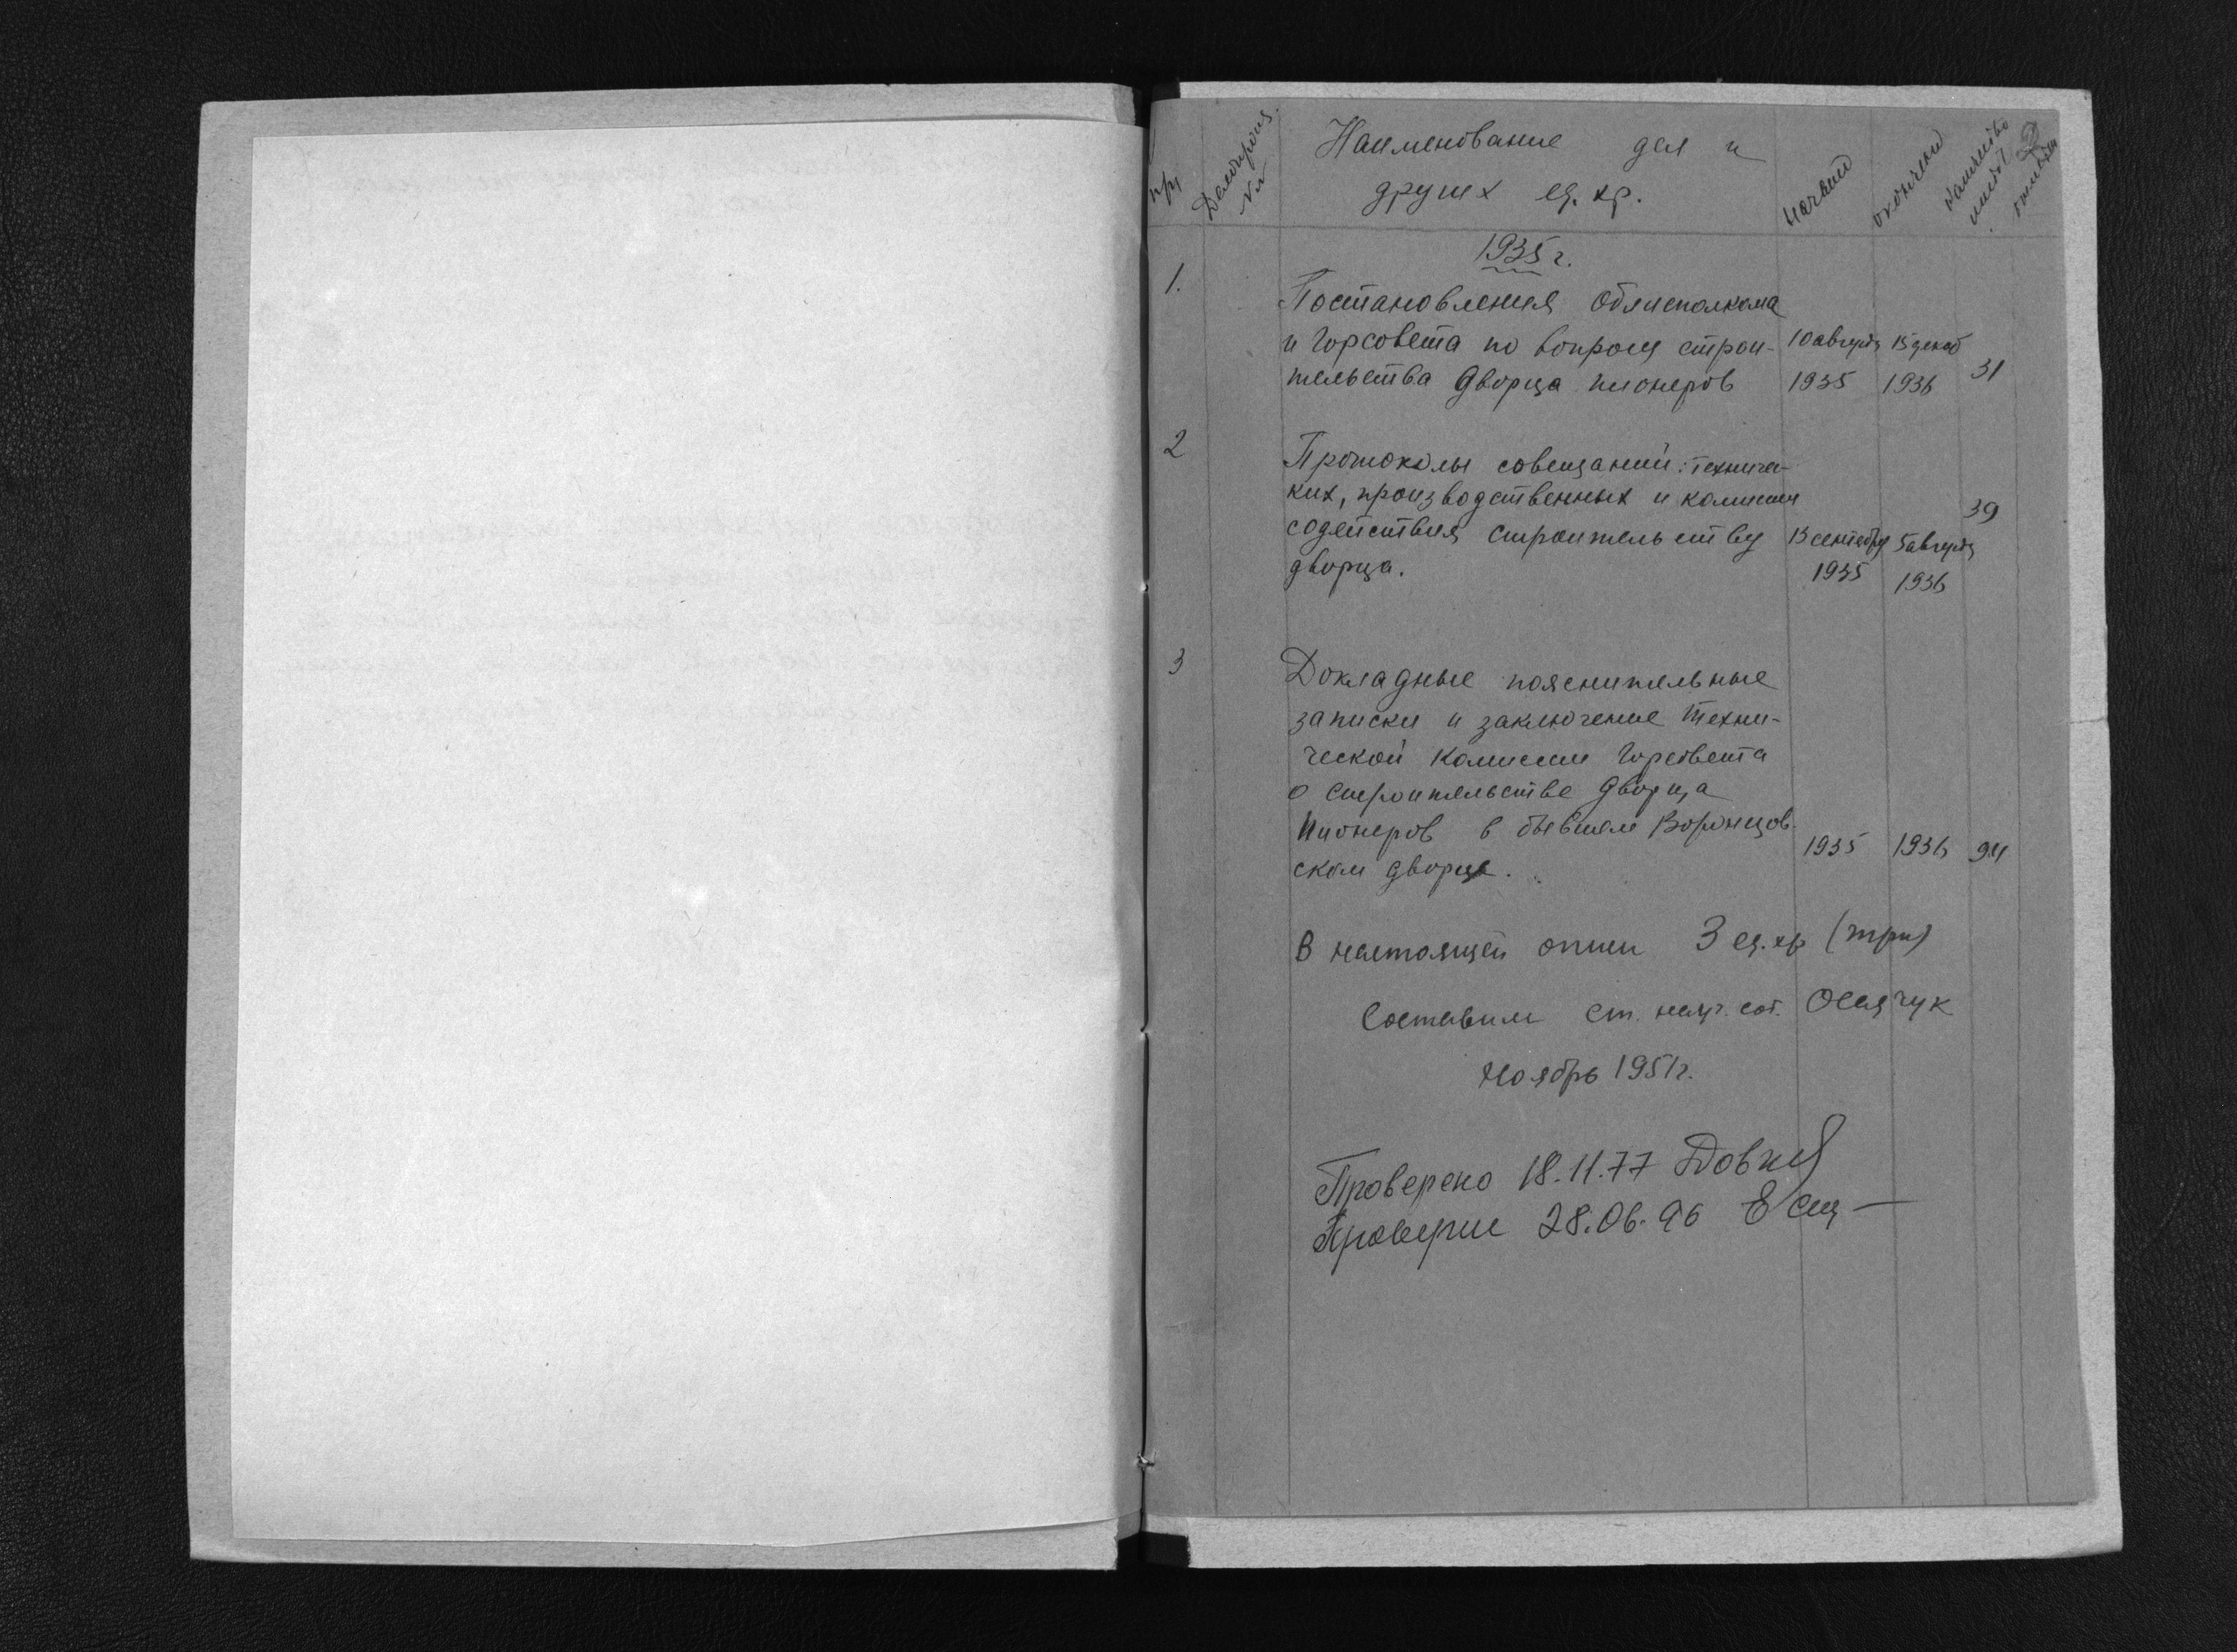 п/п
Делопроизв.
№№
Наименование дел и
других ед. хр.
начало
окончен
количество
листов
2
1935 г.
1.
Постановления Облисполкома
и Горсовета по вопросу строи-
тельства Дворца пионеров
10 августа 1935
15 декаб 1936
31
2
Протоколы совещаний: техничес-
ких, производственных и комиссии
содействия строительству
дворца.
13 сентября 1935
5 августа 1936
39
3
Докладные пояснительные
записки и заключение техни-
ческой комиссии Горсовета
о строительстве Дворца
Пионеров в бывшем Воронцов-
ском дворце.
1935 1936 94
В настоящей описи 3 ед. хр (три)
Составил ст. науч. сот. Осадчук
Ноябрь 1951 г.
Проверено 18.11.77
Проверил 28.06.96